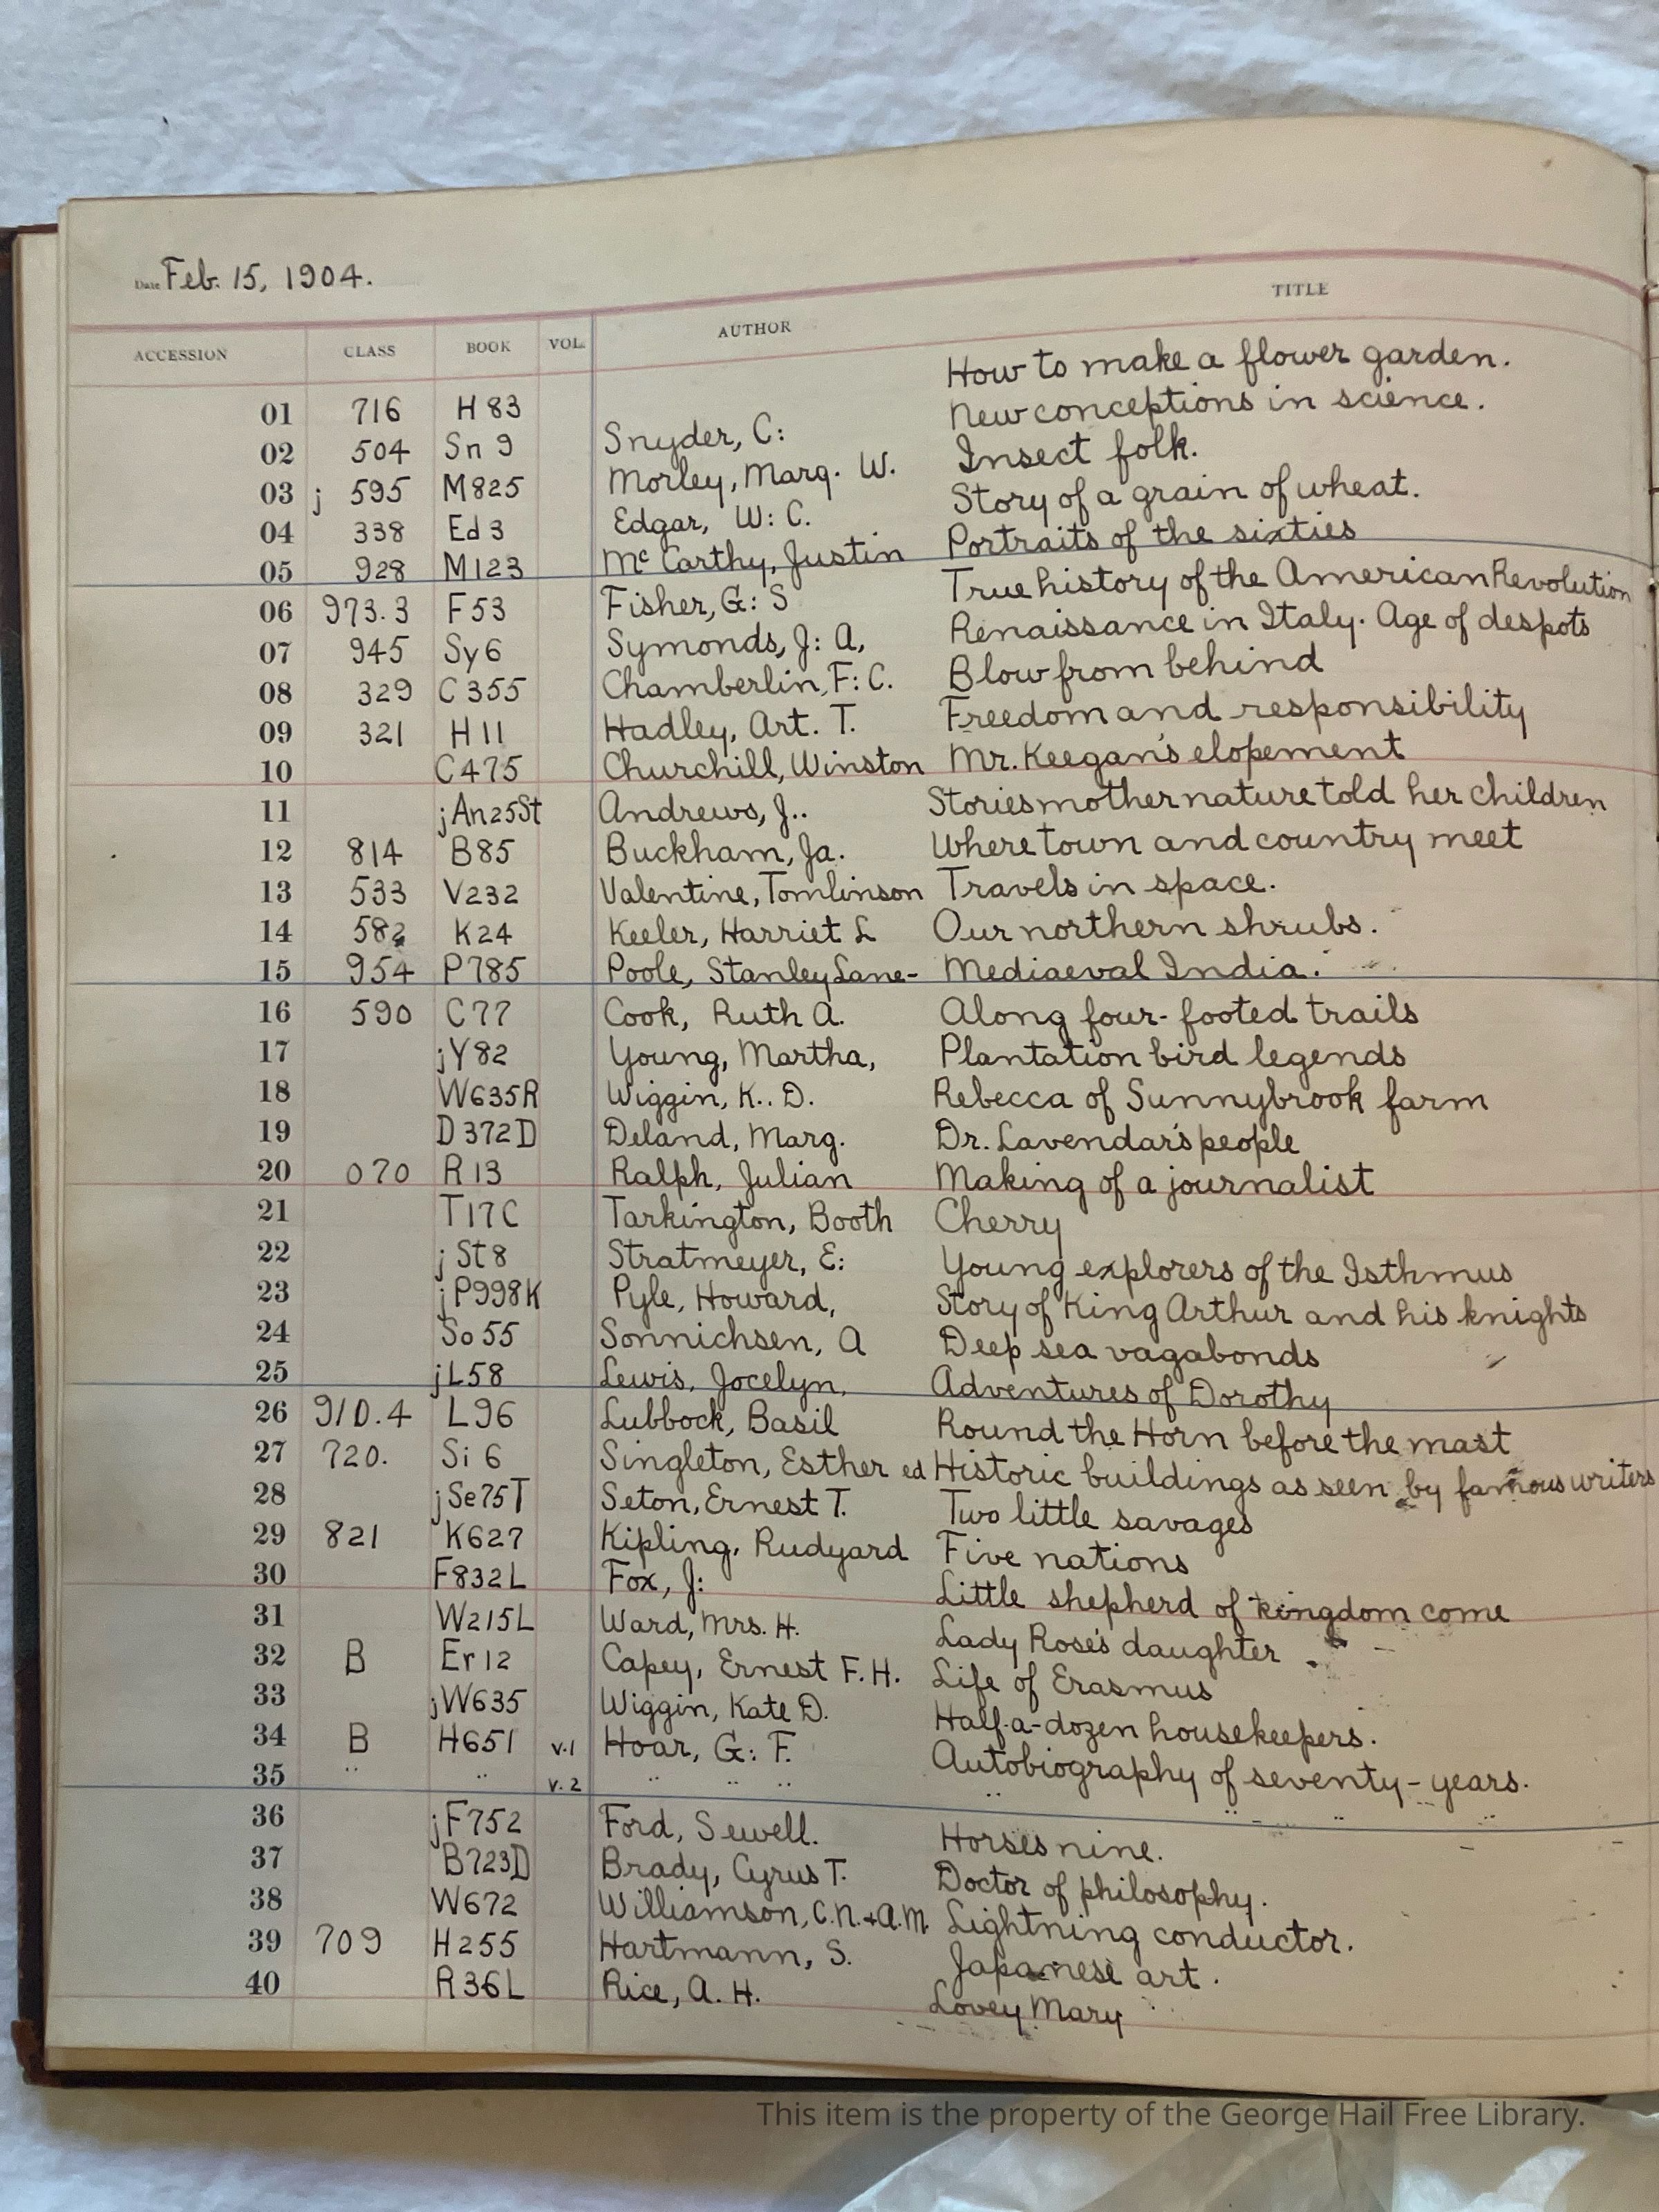 Date Feb. 15, 1904.
ACCESSION CLASS BOOK VOL. AUTHOR TITLE
01 716 H 83 How to make a flower garden.
02 504 Sn 9 Snyder, C: New conceptions in science.
03 j 595 M825 Morley, Marg. W. Insect folk.
04 338 Ed 3 Edgar, W: C. Story of a grain of wheat.
05 928 M123 McCarthy, Justin Portraits of the sixties
06 973.3 F53 Fisher, G: S True history of the American Revolution
07 945 Sy6 Symonds, J: A, Renaissance in Italy. Age of despots
08 329 C355 Chamberlin, F: C. Blow from behind
09 321 H11 Hadley, Art. T. Freedom and responsibility
10 C475 Churchill, Winston Mr. Keegan's elopement
11 jAn25St Andrews, J.. Stories mother nature told her children
12 814 B85 Buckham, Ja. Where town and country meet
13 533 V232 Valentine, Tomlinson Travels in space.
14 582 K24 Keeler, Harriet L Our northern shrubs.
15 954 P785 Poole, Stanley Lane- Mediaeval India.
16 590 C77 Cook, Ruth A. Along four-footed trails
17 jY82 Young, Martha, Plantation bird legends
18 W635R Wiggin, K.. D. Rebecca of Sunnybrook farm
19 D372D Deland, Marg. Dr. Lavendar's people
20 070 R13 Ralph, Julian Making of a journalist
21 T17C Tarkington, Booth Cherry
22 j St8 Stratmeyer, E: Young explorers of the Isthmus
23 jP998K Pyle, Howard, Story of King Arthur and his knights
24 So55 Sonnichsen, A Deep sea vagabonds
25 jL58 Lewis, Jocelyn, Adventures of Dorothy
26 910.4 L96 Lubbock, Basil Round the Horn before the mast
27 720. Si 6 Singleton, Esther ed Historic buildings as seen by famous writers
28 jSe75T Seton, Ernest T. Two little savages
29 821 K627 Kipling, Rudyard Five nations
30 F832L Fox, J: Little shepherd of kingdom come
31 W215L Ward, Mrs. H. Lady Rose's daughter
32 B Er12 Capey, Ernest F. H. Life of Erasmus
33 jW635 Wiggin, Kate D. Half-a-dozen housekeepers.
34 B H651 v.1 Hoar, G: F. Autobiography of seventy-years.
35 " " v.2 " " " " " " "
36 jF752 Ford, Sewell. Horses nine.
37 B723D Brady, Cyrus T. Doctor of philosophy.
38 W672 Williamson, C.N. + A.M. Lightning conductor.
39 709 H255 Hartmann, S. Japanese art.
40 R36L Rice, A. H. Lovey Mary
This item is the property of the George Hail Free Library.